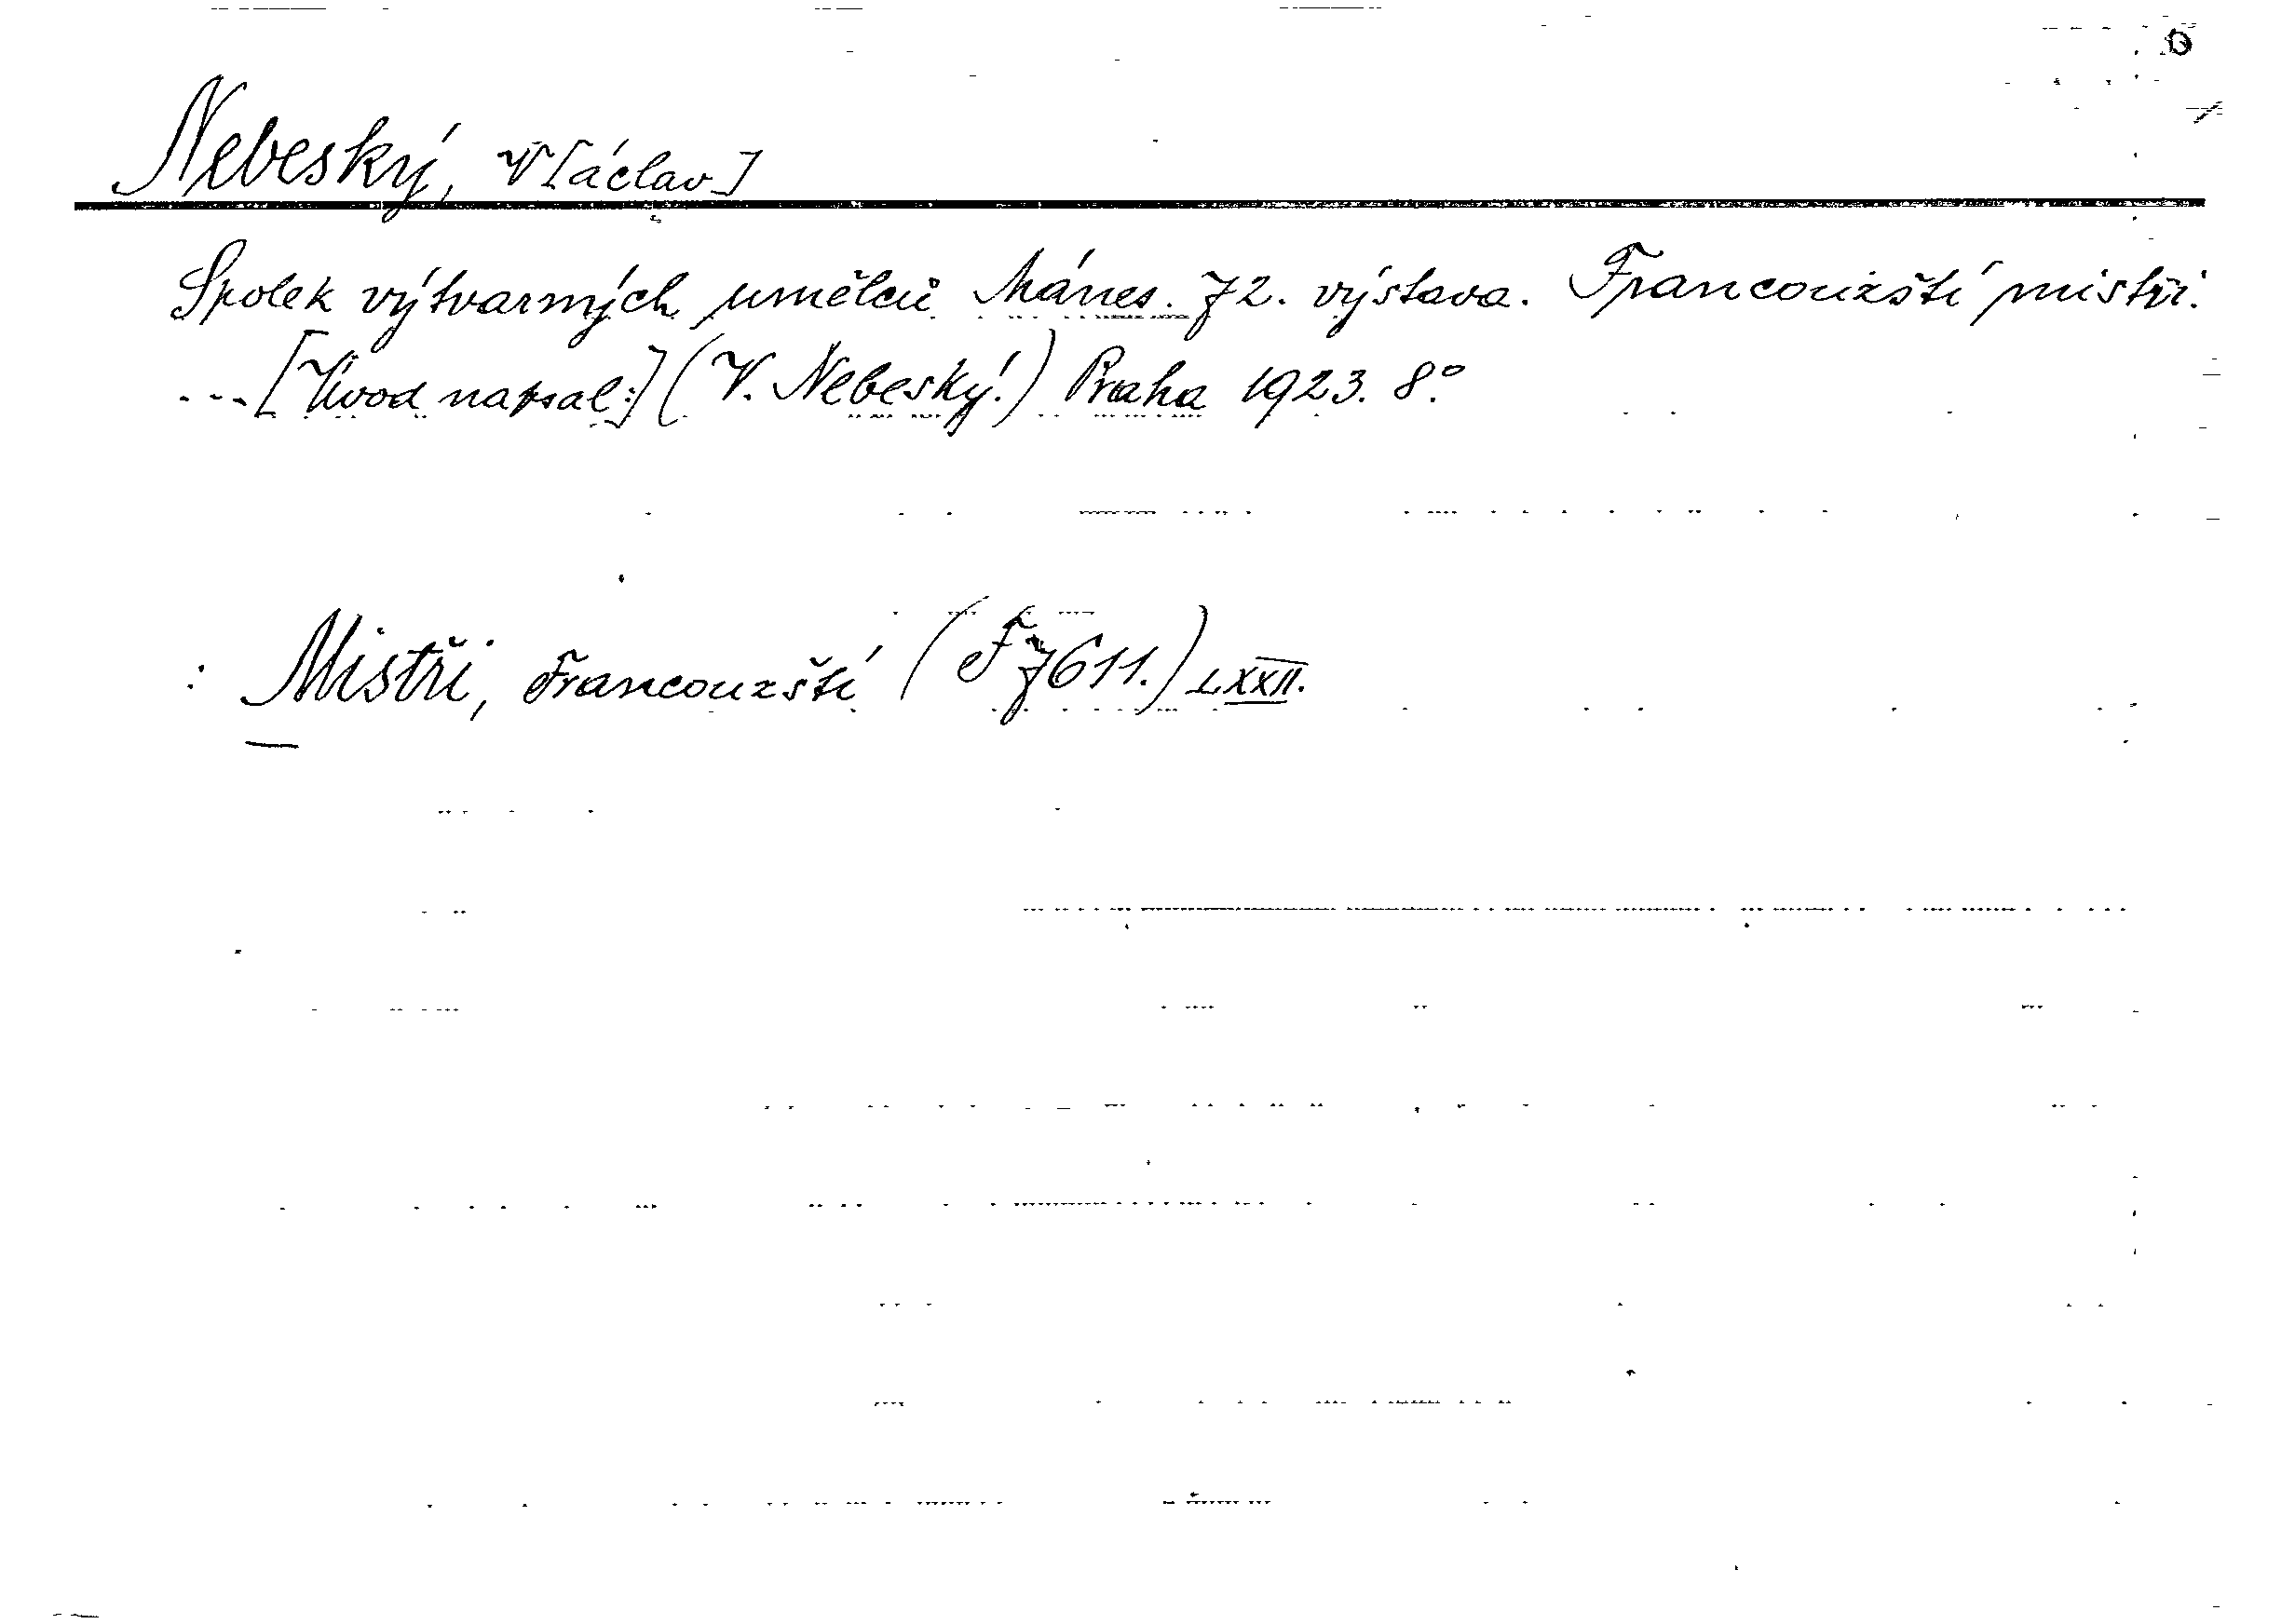 Nebeský, V[áclav]
Spolek výtvarných umělců Mánes. 72. výstava. Francouzští mistři.
... [Úvod napsal:] (V. Nebeský.) Praha 1923. 8°.
: Mistři, Francouzští (F 7611.) LXXII.